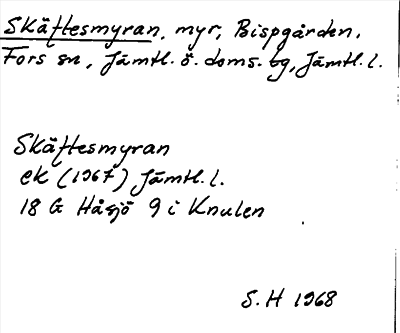 Skäftesmyran, myr, Bispgården,
Fors sn, Jämtl. ö. doms. bg, Jämtl. l.
Skäftesmyran
ek (1967) Jämtl. l.
18 G Håsjö 9 i Knulen
S. H 1968